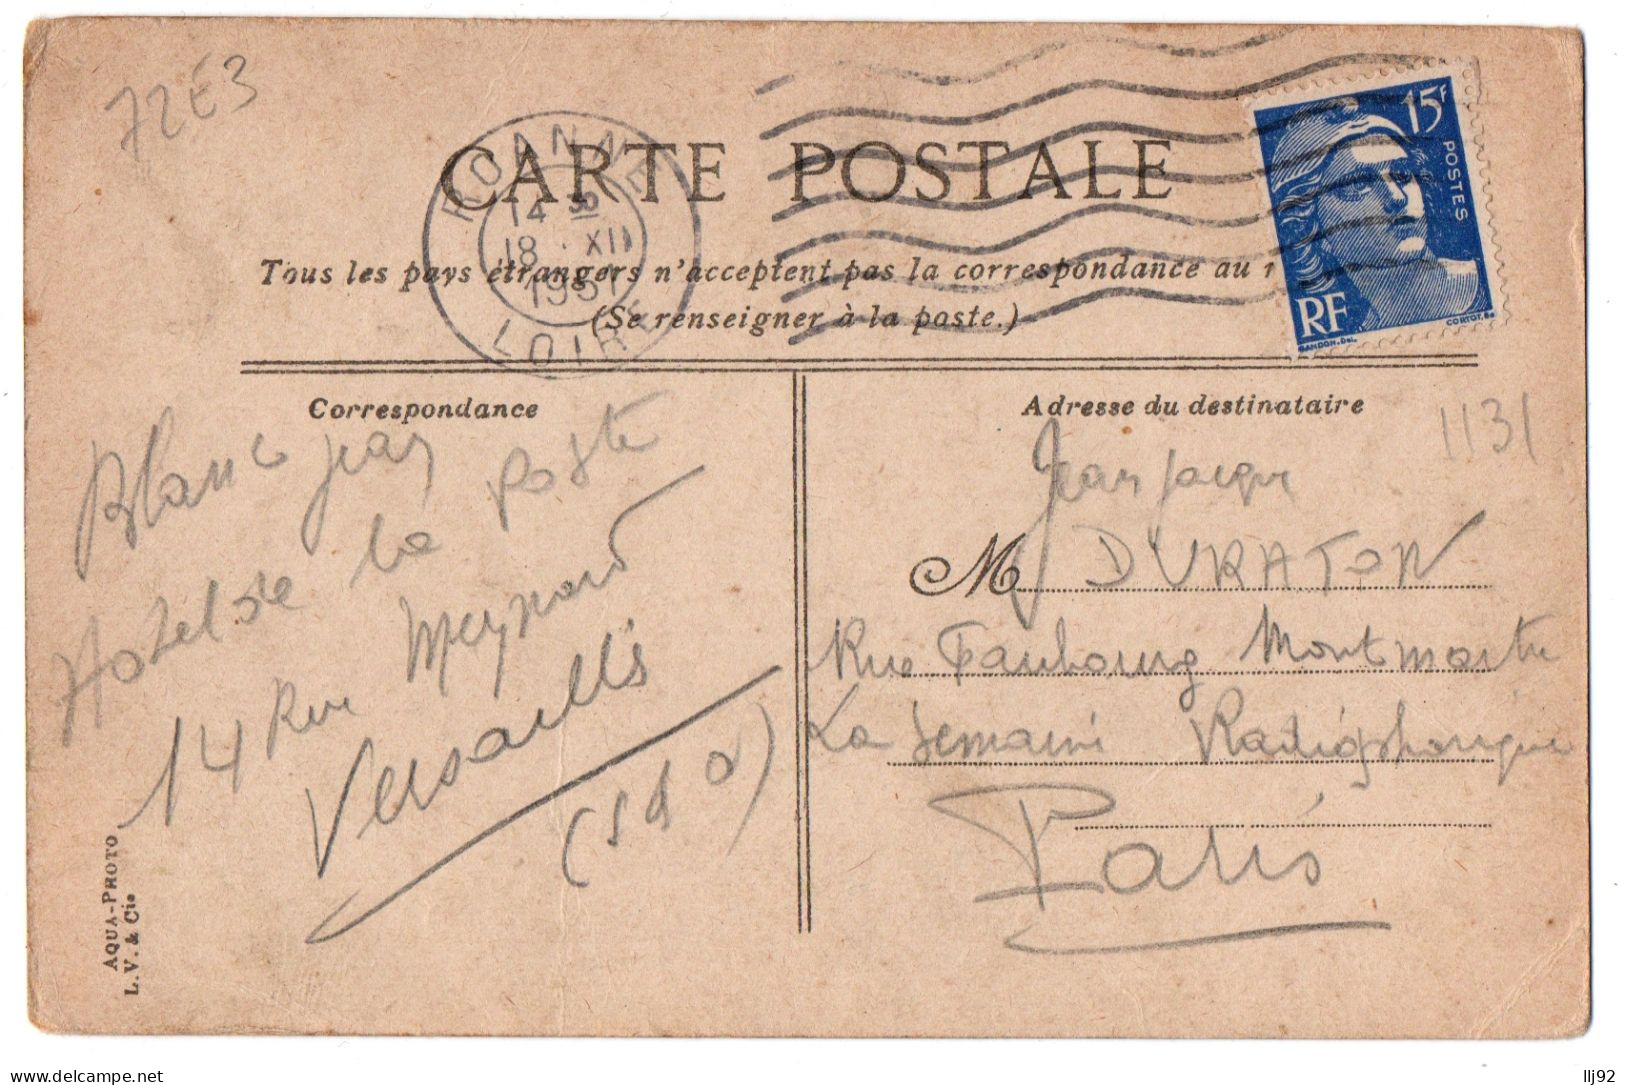 72E3
CARTE POSTALE
ROANNE
14 H
18 XII
1951
LOIRE
15F
POSTES
RF
GANDON.Del.
CORTOT.Sc
Tous les pays étrangers n'acceptent pas la correspondance au
(Se renseigner à la poste.)
Correspondance
Blanc Jean
Hotel de la poste
14 Rue Meynard
Versailles
(s d o)
AQUA-PHOTO
L. V. & Cie
Adresse du destinataire
1131
Jean Jacque
M DURATON
Rue Faubourg Montmartre
La Semaine Radiophonique
Paris
delcampe.net
llj92